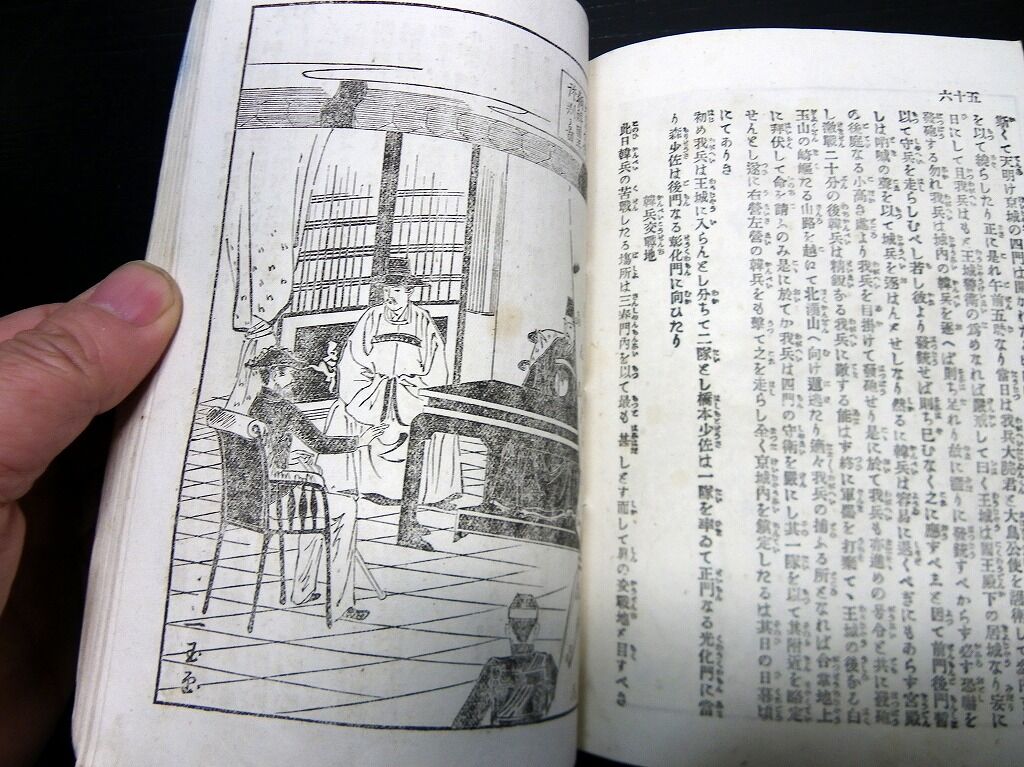 六十五
斯くて天明け京城の四門は開かれ
を以て繞らしたり正に是れ午前五時なり當日は我兵大院君と大鳥公使を護衛して
日にして且我兵はもと王城警衛の爲めなれば嚴戒して曰く王城は國王殿下の居城なり妄に
發砲する勿れ我兵は城内の韓兵を逐へば則ち足れり故に濫りに發銃すべからず必ず恐嚇を
以て守兵を走らしむべし若し彼より發銃せば則ち已むなく之に應ずべしと因て前門後門暫
しは吶喊の聲を以て城兵を逐はんとせしなり然るに韓兵は容易に退くべきにもあらず宮殿
の後庭なる小高き處より我兵を目掛けて發砲せり是に於て我兵も亦進めの號令と共に發砲
し激戰二十分の後韓兵は精鋭なる我兵に敵する能はず終に軍器を打棄てゝ王城の後なる白
玉山の崎嶇たる山路を越えて北漢山へ向け遁逃たり猶々我兵の捕ふる所となれば合掌地上
に拜伏して命を請ふのみ是に於てか我兵は四門の守衛を嚴にし其一隊を以て其附近を略定
せんとし遂に右營左營の韓兵をも撃て之を走らし全く京城内を鎮定したるは其日の日暮頃
にてありき
初め我兵は王城に入らんとし分ちて二隊とし橋本少佐は一隊を率ゐて正門なる光化門に當
り森少佐は後門なる彰化門に向ひたり
韓兵交戰地
此日韓兵の苦戰したる塲所は三秦門内を以て最も甚しとす而して眞の交戰地と目すべき
一玉畫